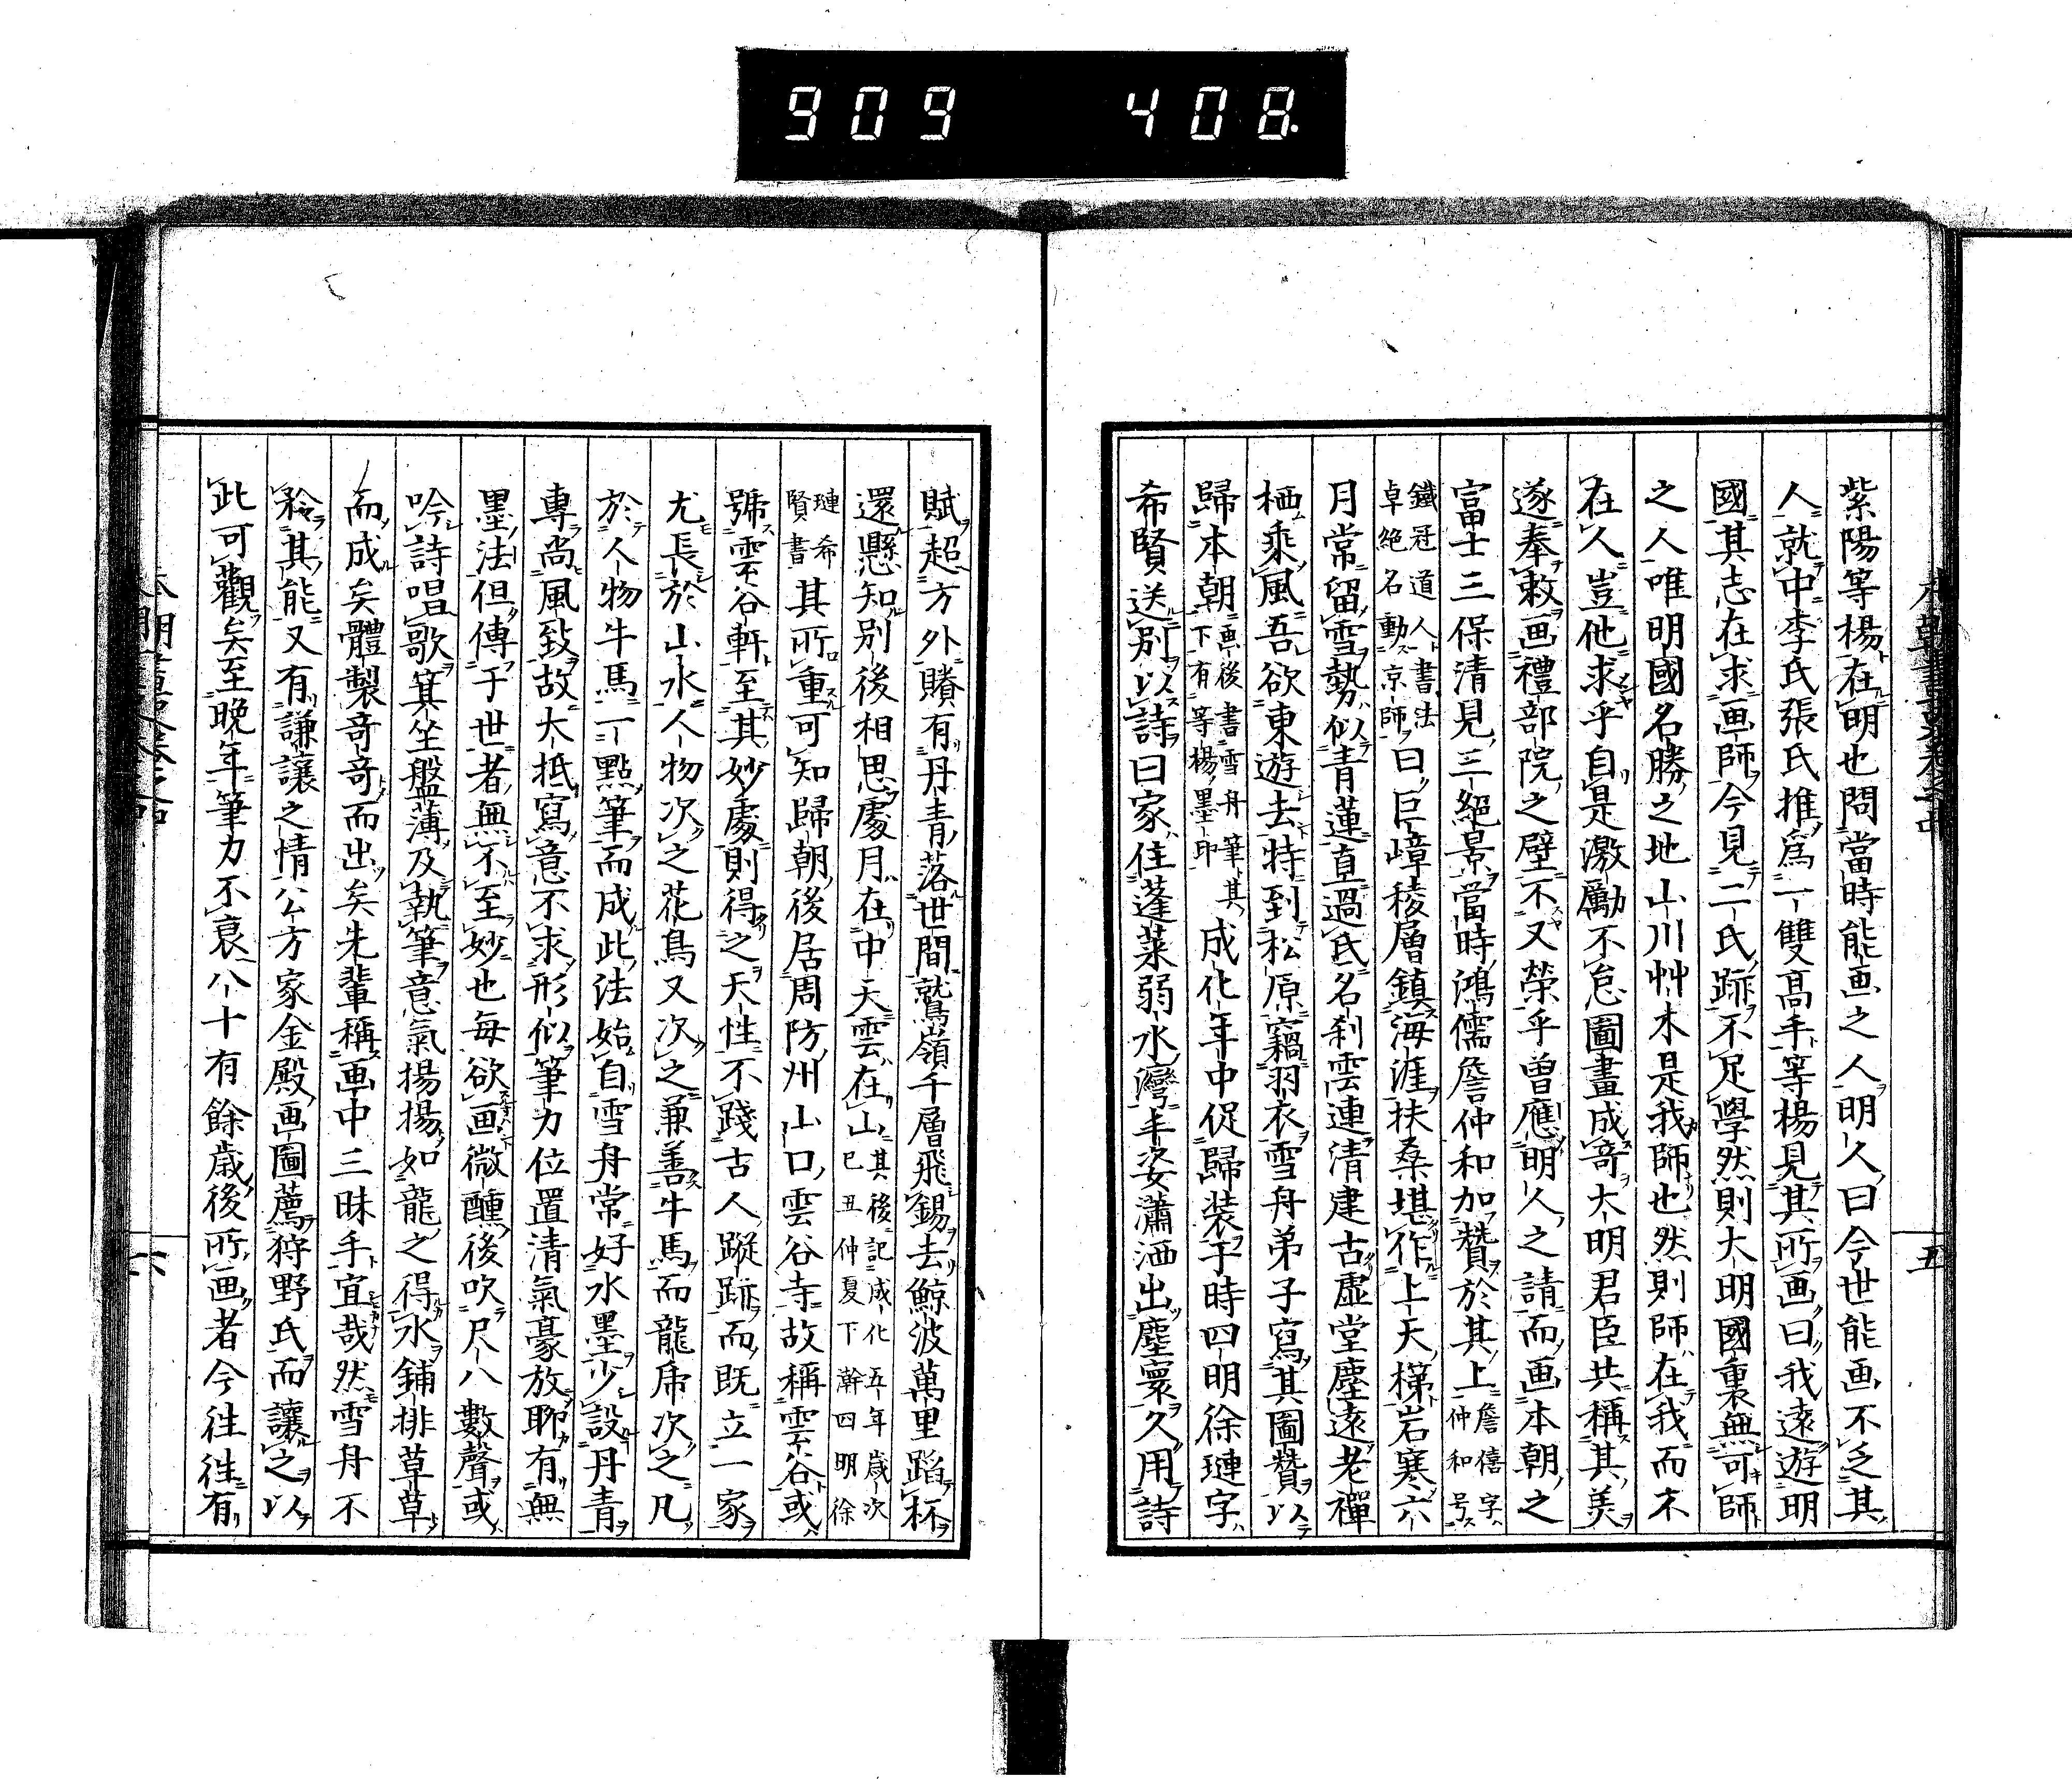 909 408.
五
紫陽等楊在明也問當時能画之人明人曰今世能画不乏其
人就中李氏張氏推爲一雙髙手等楊見其所画曰我遠遊明
國其志在求画師今見二氏跡不足學然則大明國裏無可師
之人唯明國名勝之地山川艸木是我師也然則師在我而不
在人豈他求乎自是激勵不怠圖畫成竒大明君臣共稱其美
遂奉敕画禮部院之壁不又榮乎曽應明人之請而画本朝之
富士三保清見三絕景當時鴻儒詹仲和加贊於其上詹僖字仲和号
鐵冠道人書法卓絕名動京師曰巨嶂稜層鎮海涯扶桑堪作上天梯岩寒六
月常留雪勢似青蓮直過氏名刹雲連清建古虛堂塵遠老禪
栖乘風吾欲東遊去特到松原竊羽衣雪舟弟子寫其圖贊以
歸本朝画後書雪舟筆其下有等楊墨印成化年中促歸装于時四明徐璉字
希賢送別以詩曰家住蓬莱弱水灣丰姿瀟洒出塵寰久用詩
賦超方外賸有丹青落世間鷲嶺千層飛錫去鯨波萬里蹈杯
還懸知别後相思處月在中天雲在山其後記成化五年歳次己丑仲夏下澣四明徐
璉希賢書其所重可知歸朝後居周防州山口雲谷寺故稱雲谷或
號雲谷軒至其妙處則得之天性不踐古人蹤跡而既立一家
尤長於山水人物次之花鳥又次之兼善牛馬而龍虎次之凡
於人物牛馬一點筆而成此法始自雪舟常好水墨少設丹青
專尚風致故大抵寫意不求形似筆力位置清氣豪放聊有無
墨法但傳于世者無不至妙也每欲画微醺後吹尺八數聲或
吟詩唱歌箕坐盤薄及執筆意氣揚揚如龍之得水鋪排草草
而成矣體製竒竒而出矣先輩稱画中三昧手宜哉然雪舟不
矜其能又有謙讓之情公方家金殿画圖薦狩野氏而讓之以
此可觀矣至晩年筆力不衰八十有餘歳後所画者今往往有
六